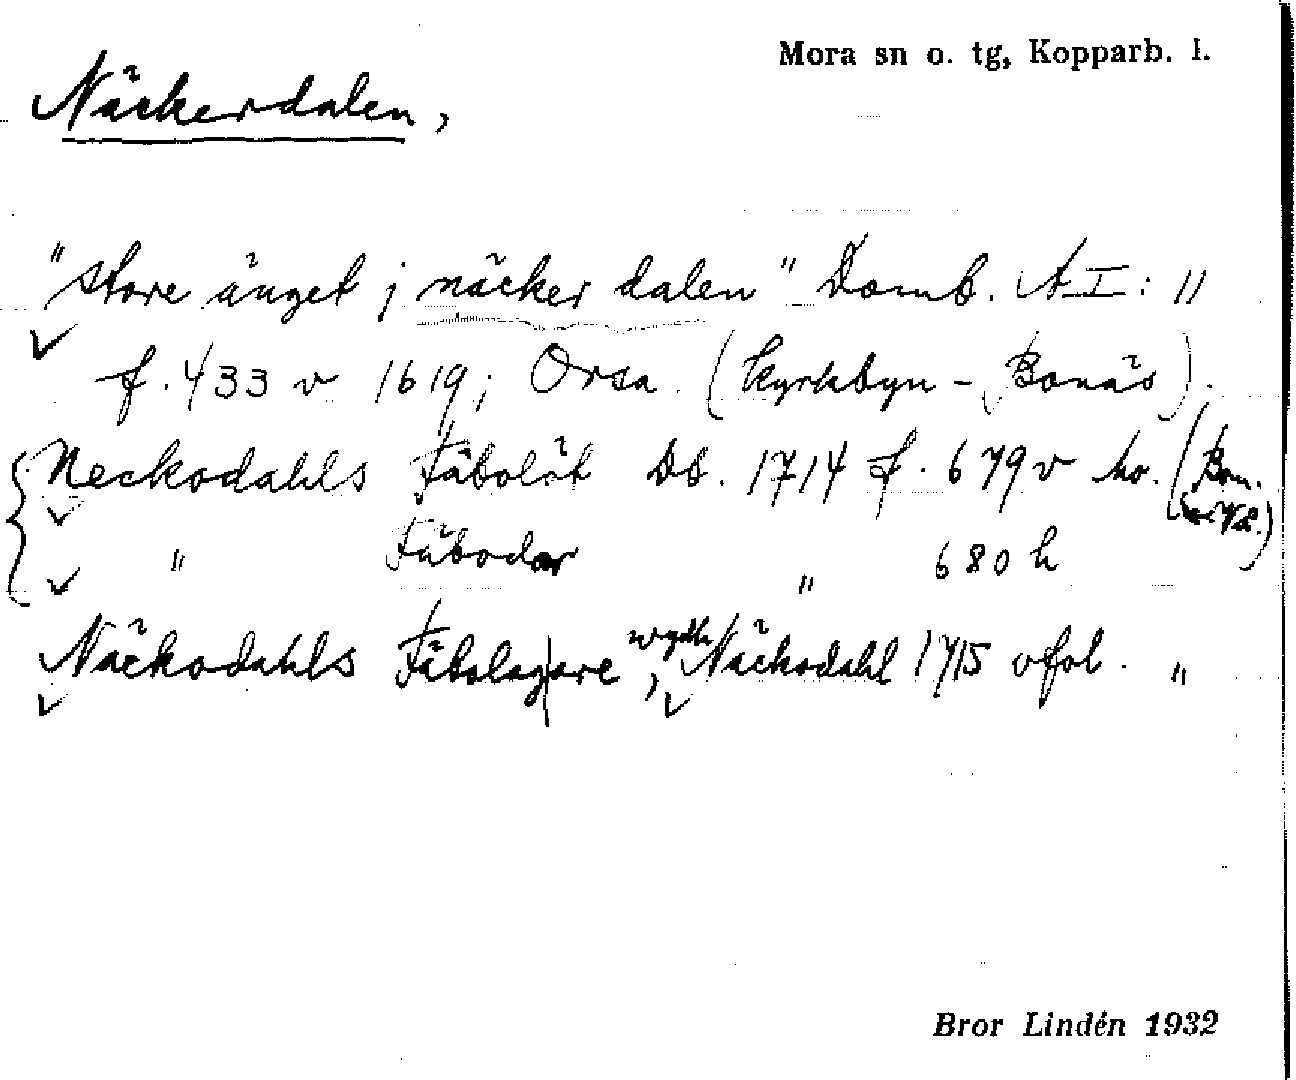 Mora sn o. tg, Kopparb. l.
Näckerdalen,
"store änget j näcker dalen" Domb. A I: 11
f. 433 v 1619; Orsa. (Kyrkbyn - Bonäs).
Neckodahls Fäbolöt Db. 1714 f. 679 v ho. (Bon.
" Fäbodar " 680 h
Näckodahls Fäbolagare, wydh Näckodahl 1715 ofol. "
Bror Lindén 1932